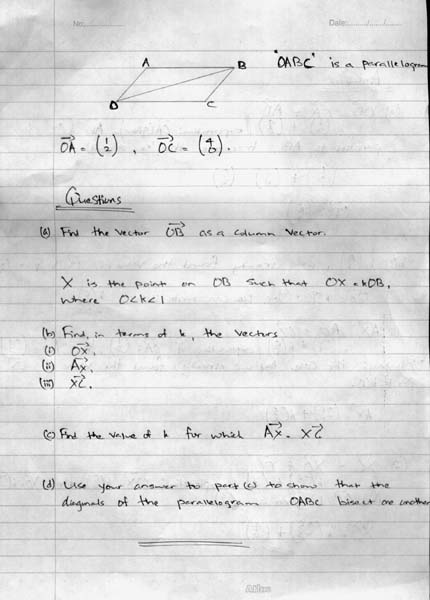 No:
Date:
A
B
'OABC' is a parallelogram
O
C
OA = (1 2), OC = (4 0).
Questions
(a) Find the vector OB as a column vector.
X is the point on OB such that OX = kOB,
where 0<k<1
(b) Find, in terms of k, the vectors
(i) OX,
(ii) AX,
(iii) XC.
(c) Find the value of k for which AX = XC
(d) Use your answer to part (c) to show that the
diagonals of the parallelogram OABC bisect one another